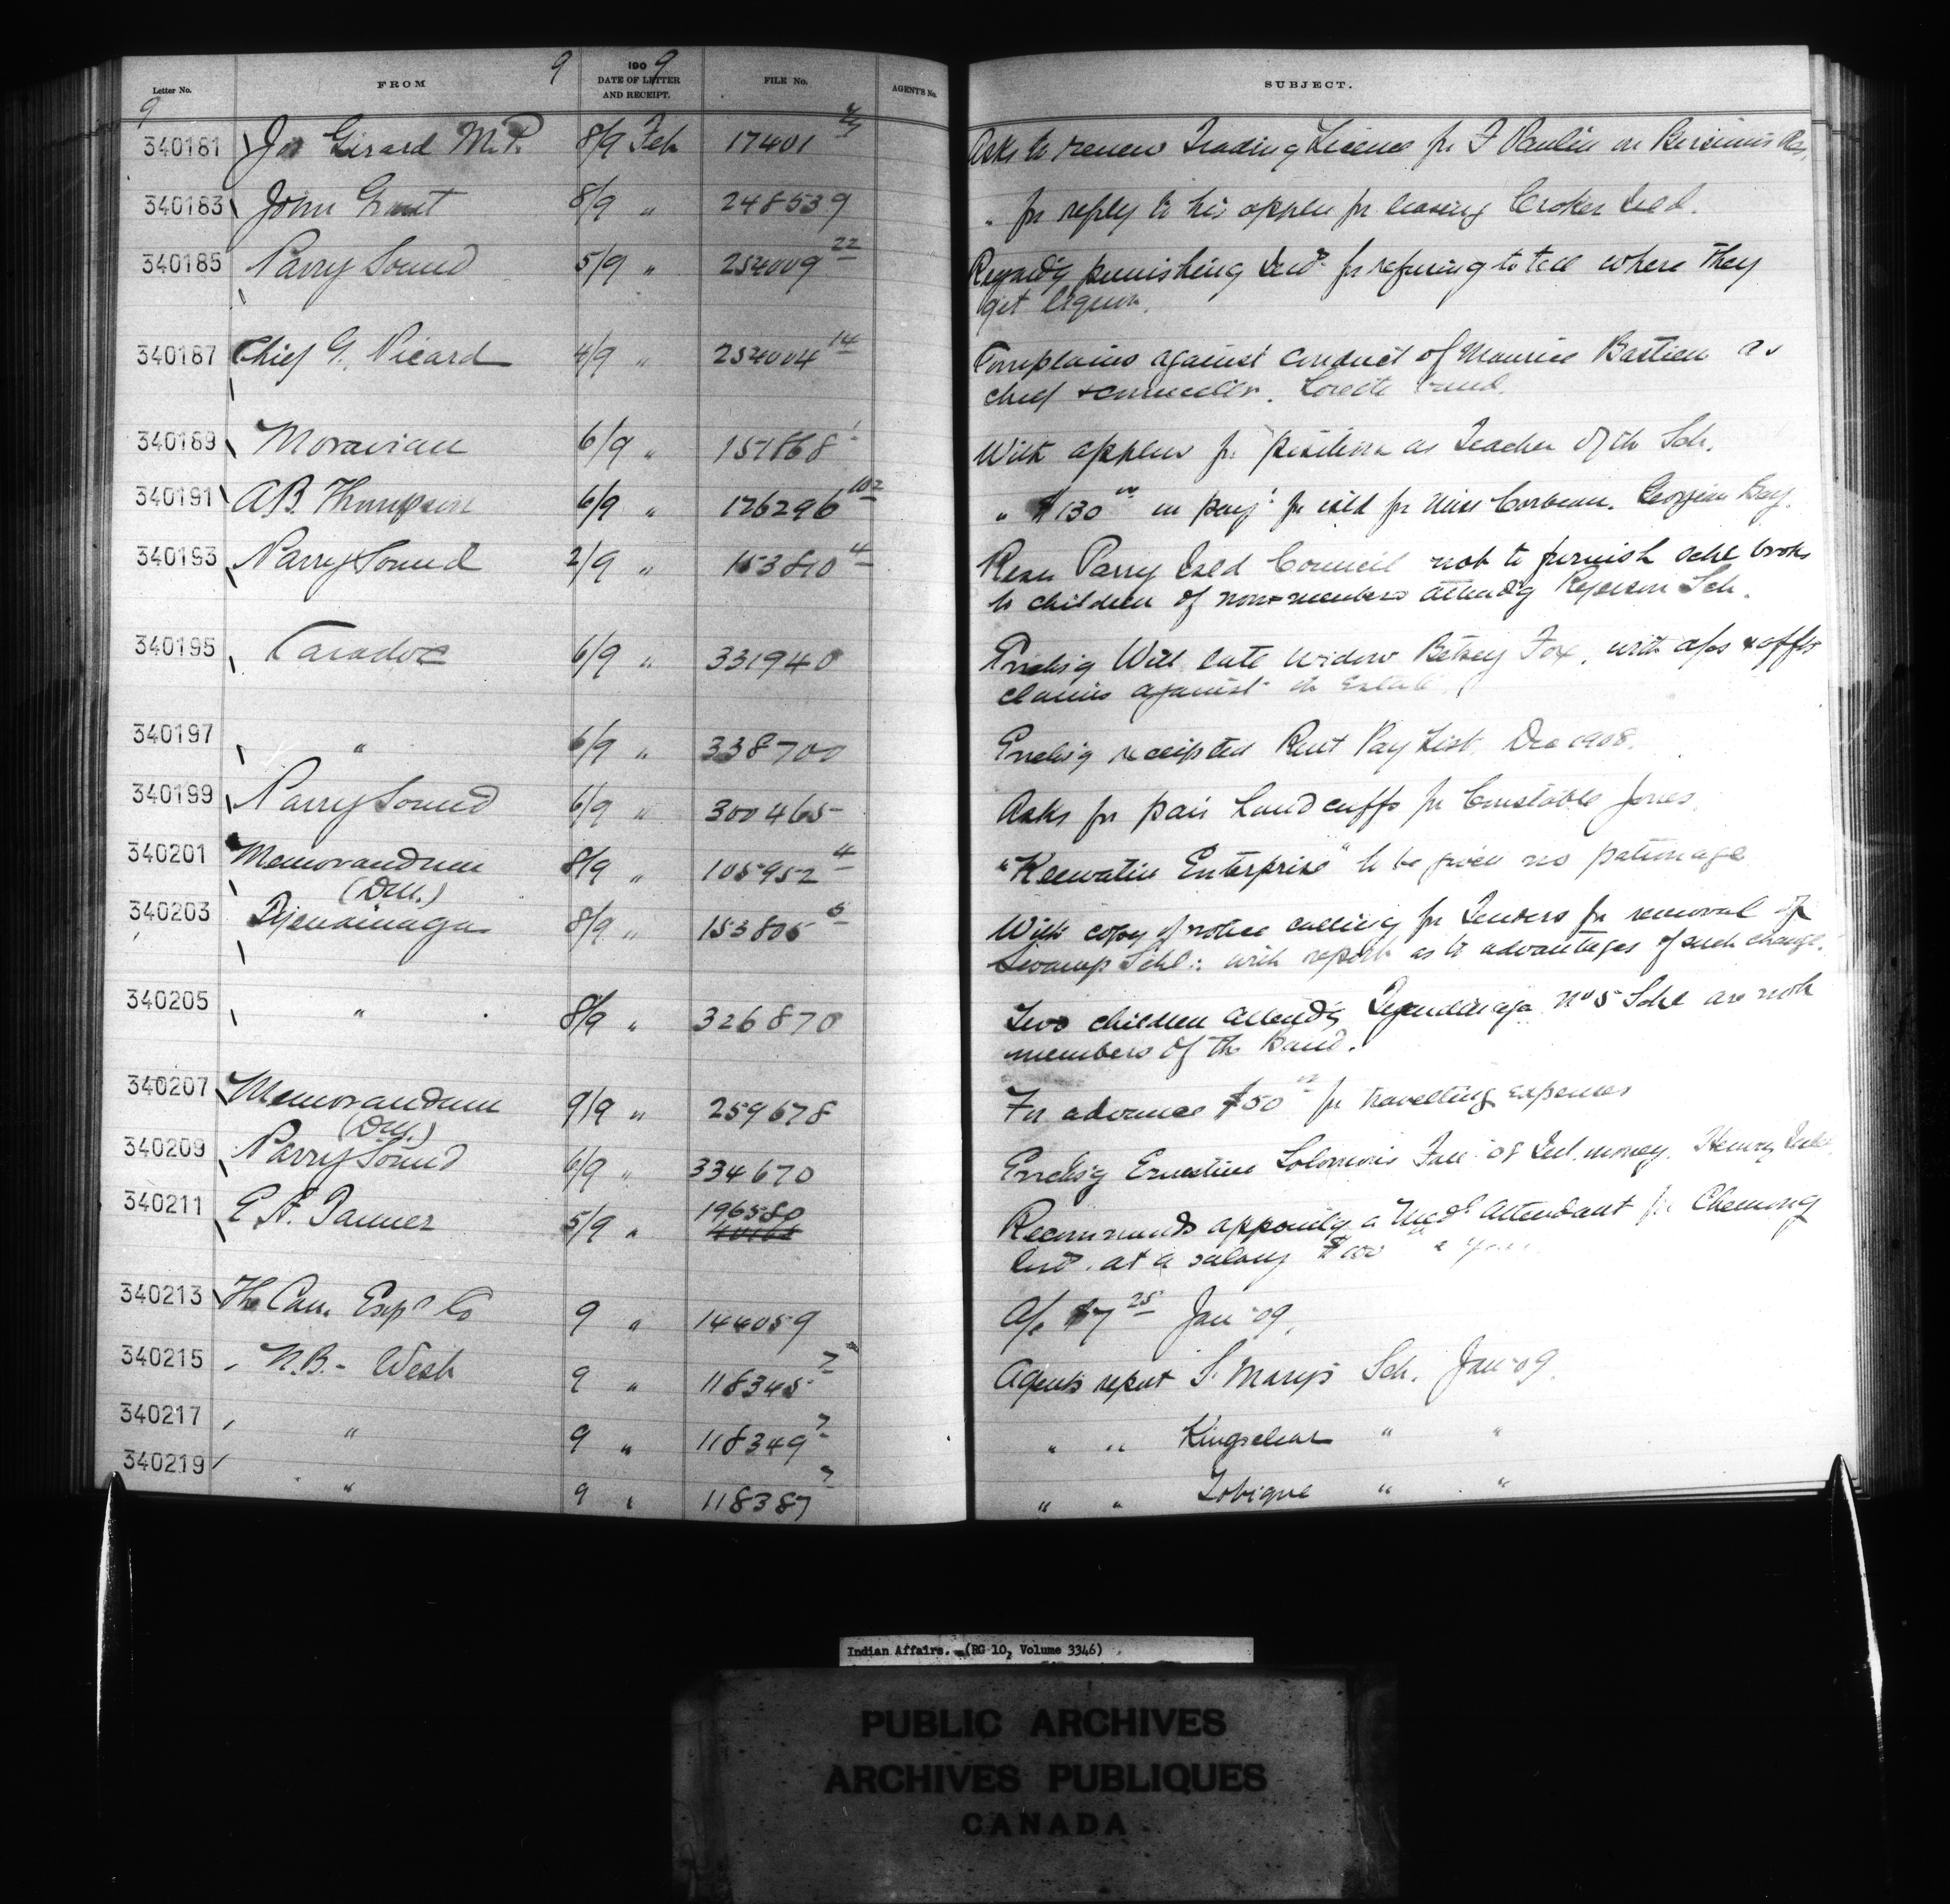 Letter No. FROM 9 1909 DATE OF LETTER AND RECEIPT. FILE No. AGENT'S No. SUBJECT.
9
340181 Jos Girard M.P. 8/9 Feb 17401 Asks to renew Trading License for F Paulin on Bersimis Res.
340183 John Grant 8/9 " 248539 " for reply to his applcn for leasing Croker Isld.
340185 Parry Sound 5/9 " 254009 22 Regard'g punishing Inds for refusing to tell where they
get liquor.
340187 Chief G. Picard 4/9 " 254004 14 Complains against conduct of Maurice Bastien as
chief & councillor. Lorette band.
340189 Moravian 6/9 " 151868 With applcn for position as Teacher of the Sch.
340191 A.B. Thompson 6/9 " 126296 102 " $130 00 in pay't for isld for Miss Corbeau. Georgian Bay.
340193 Parry Sound 2/9 " 153810 4 Resn Parry Isld Council not to furnish schl books
to children of non-members attend'g Ryerson Sch.
340195 Caradoc 6/9 " 331940 Enclos'g Will late widow Betsey Fox, with a/cs & affts
claims against the Estate
340197 " 6/9 " 338700 Enclos'g receipted Rent Pay List. Dec 1908.
340199 Parry Sound 6/9 " 300465 Asks for pair handcuffs for Constable Jones.
340201 Memorandum 8/9 " 105952 4 "Keewatin Enterprise" to be given no patronage
(DM.)
340203 Tyendinaga 8/9 " 153805 5 With copy of notice calling for Tenders for removal of
Swamp Schl: with report as to advantages of such change.
340205 " 8/9 " 326870 Two children attend'g Tyendinaga No 5 Schl are not
members of the Band.
340207 Memorandum 9/9 " 259678 For advance $50 00 for travelling expenses
(DM.)
340209 Parry Sound 6/9 " 334670 Enclos'g Ernestine Solomon's Int. money. Henry
340211 E. A. Tanner 5/9 " 196580 Recommends appoint'g a Med'l attendant for Chemong
Inds. at a salary $100 00 a year.
340213 The Can. Exps Co 9 " 144059 A/c $7 25 Jan '09.
340215 N.B. - West 9 " 118345 7 Agents report St. Mary's Sch. Jan '09.
340217 " 9 " 118349 7 " " Kingsclear " "
340219 " 9 " 118387 7 " " Tobique " "
Indian Affairs. (RG 10, Volume 3346)
PUBLIC ARCHIVES
ARCHIVES PUBLIQUES
CANADA